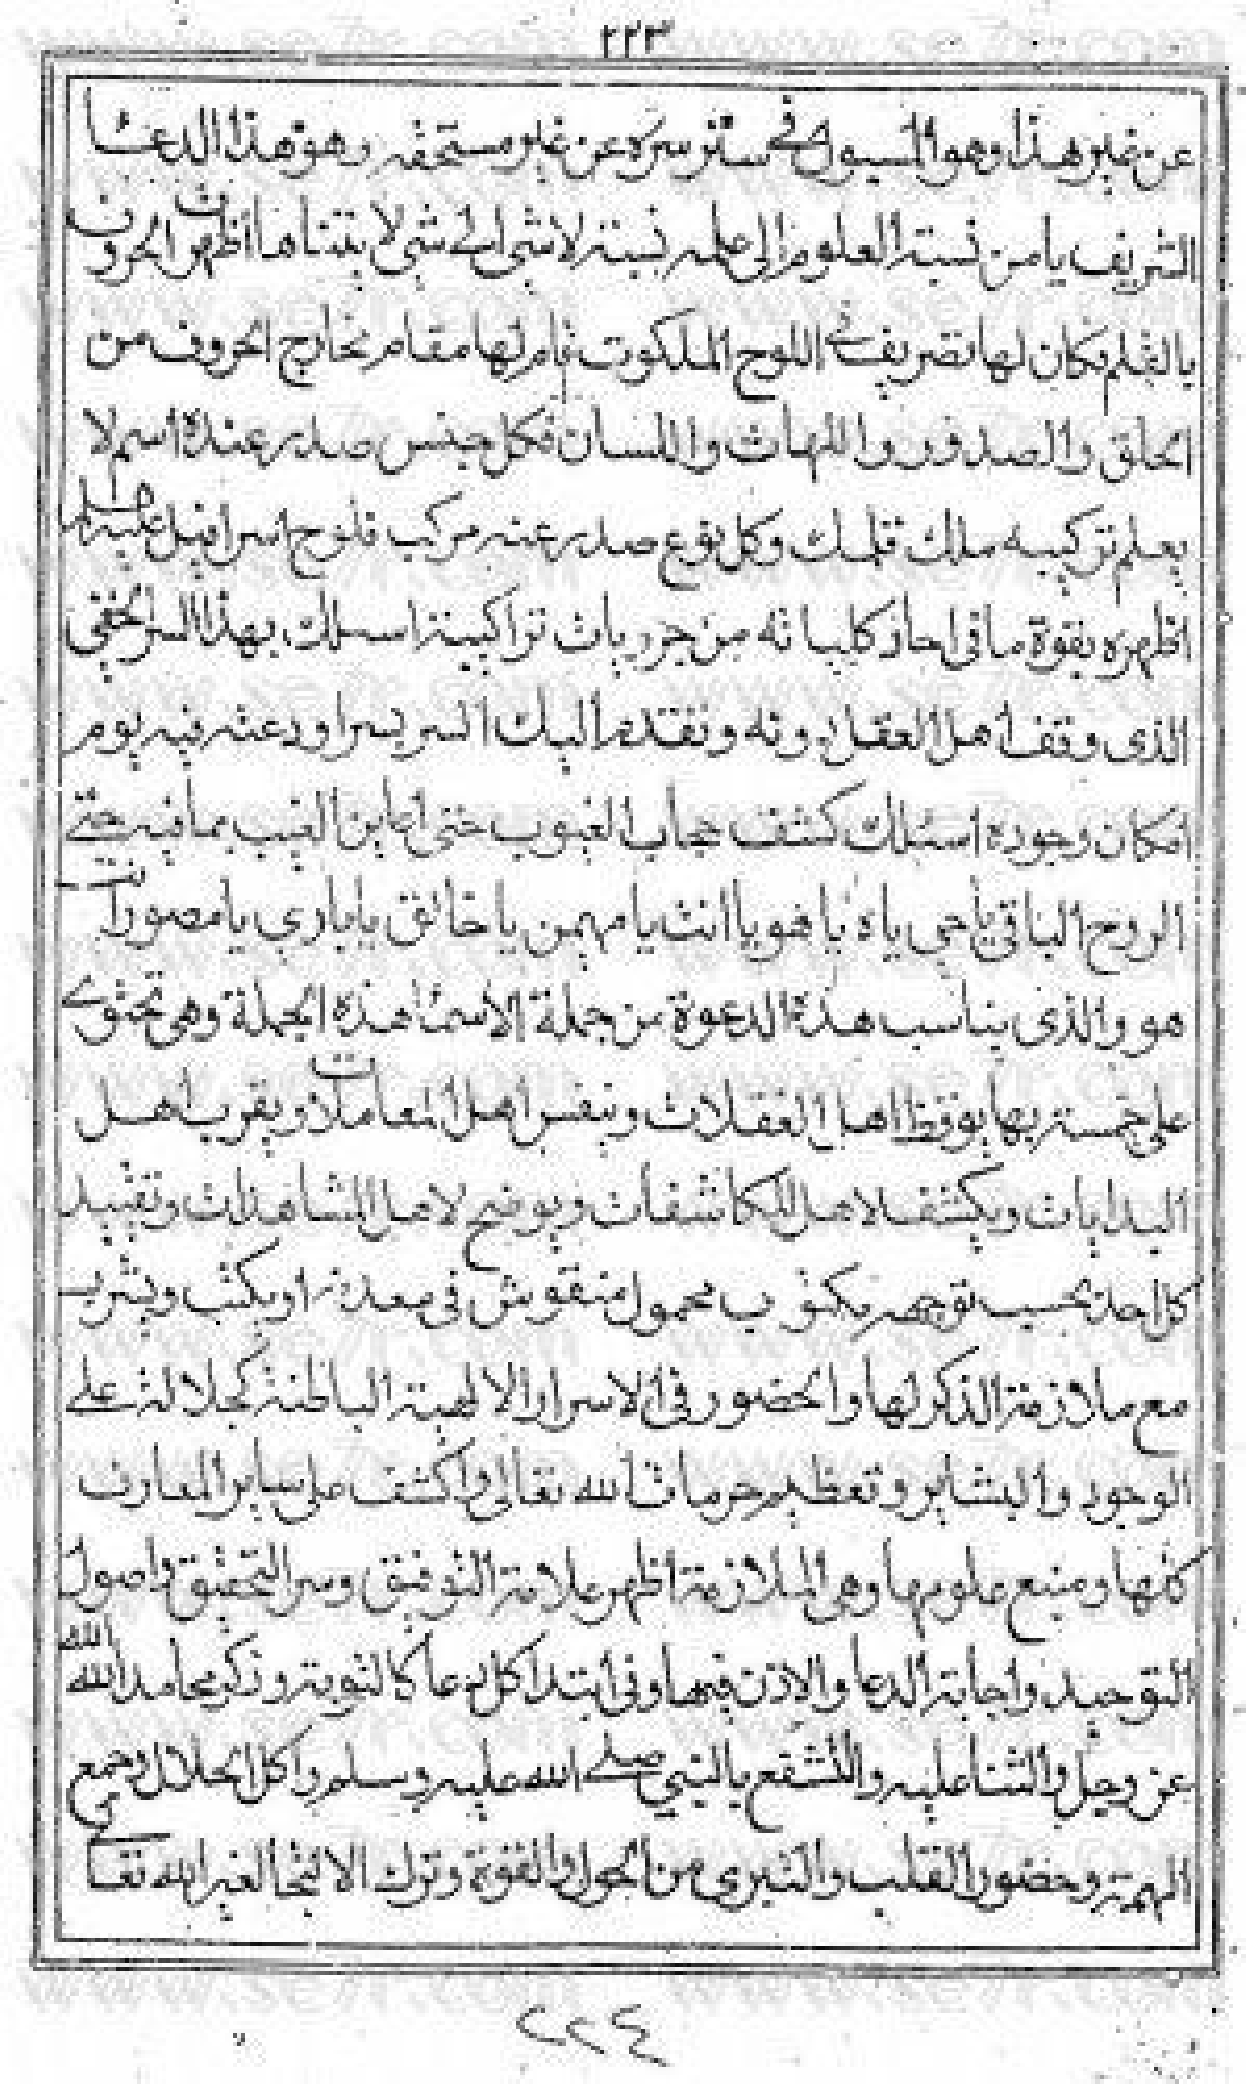 ٢٢٣
عن غيره هذا وهو المسيول في ستر سره عن غير مستحقه وهو هذا الدعا
الشريف يا من نسبة العلوم الى علمه نسبة لاشي الى شي لا يتناها اظهرت الحروف
بالقلم فكان لها تصريف في اللوح الملكوت قام لها مقام مخارج الحروف من
الحلق والصدور واللهات واللسان فكل جنس صدر عنده اسم لا
يعلم تركيبه ملك قلمك وكل نوع صدر عنه مركب فلوح اسرافيل عليه
اظهره بقوة ما في كلياته من تراكيبة اسئلك بهذا السر الخفي
الذى وقف اهل العقل دونه ونقدم اليك السر بسر اودعته فيه يوم
امكان وجوده اسئلك كشف حجاب الغيوب حتى اعاين الغيب بما فيه حتى
الروح الباقي يا حي ياه يا هو يا انت يا مهيمن يا خالق يا باري يا مصور انت
هو والذى يناسب هذه الدعوة من جملة الاسما هذه الجملة وهى تحتوى
على خمسة بها يوقظ اهل الغفلات وينفس اهل المعاملات ويقرب اهل
البدايات ويكشف لاهل المكاشفات ويوضح لاهل المشاهدات وتفيد
كل احد بحسب توجهه مكتوب محمول منقوش فى معدنه او يكتب ويشرب
مع ملازمة الذكر لها والحضور فى الاسرار الالهية الباطنة كجلالة على
الوجود والبشاير وتعظيم حرمات الله تعالى واكشف على ساير المعارف
كلها ومنبع علومها وهى الملازمة اظهر علامة التوفيق وسر التحقيق واصول
التوحيد واجابة الدعا والاذن فيها وفى ابتدا كل دعا كالتوبة وذكر محامد الله
عز وجل والثنا عليه والتشفع بالنبي صلى الله عليه وسلم واكل الحلال وجمع
الهمة وحضور القلب والتبرى من الحول والقوة وترك الالتجا لغير الله تعا
٢٢٤